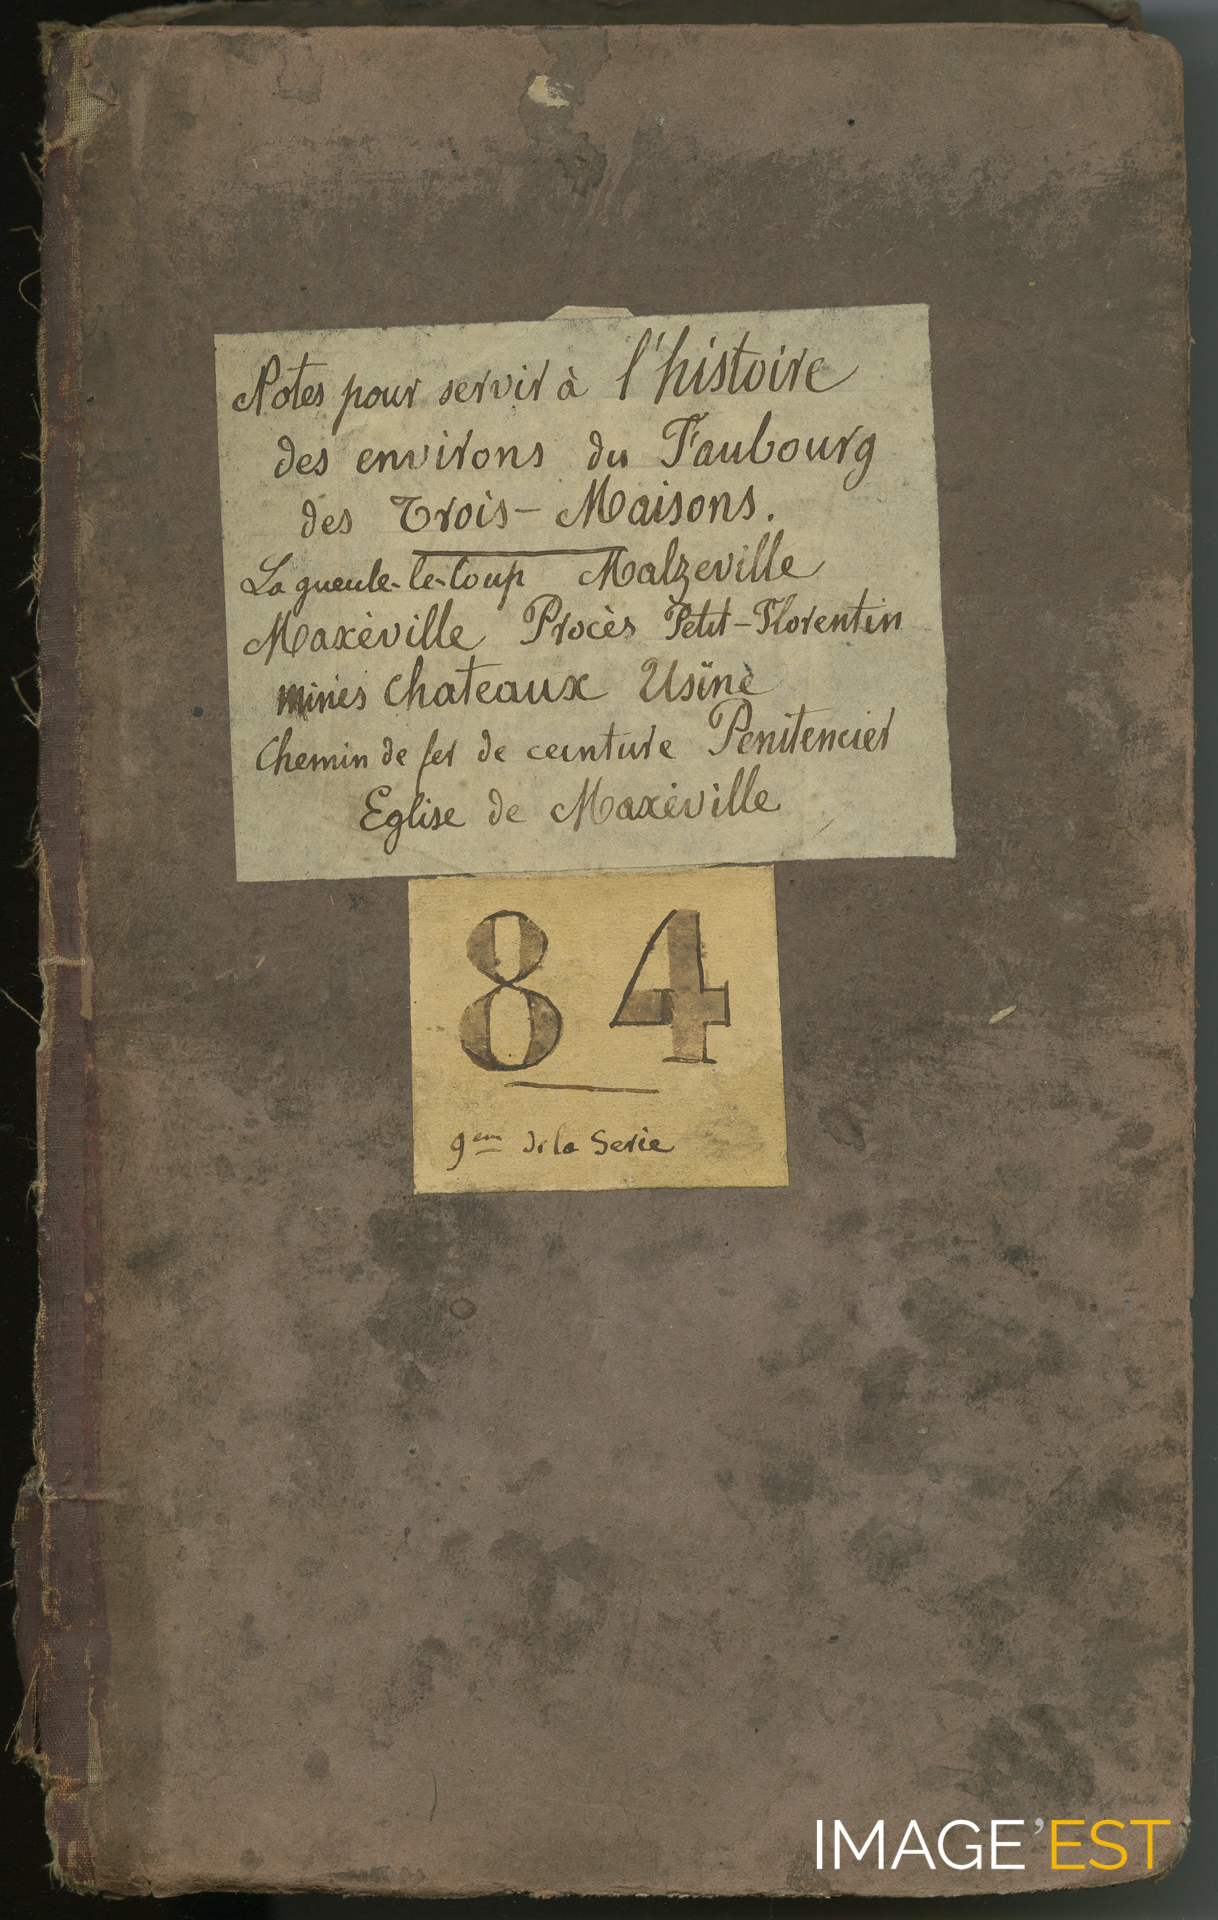 Notes pour servir à l'histoire
des environs du Faubourg
des Trois-Maisons.
La gueule-le-loup Malzeville
Maxéville Procès Petit-Florentin
mines Chateaux Usïne
Chemin de fer de ceinture Penitencier
Eglise de Maxéville
84
9em de la Serie
IMAGE'EST